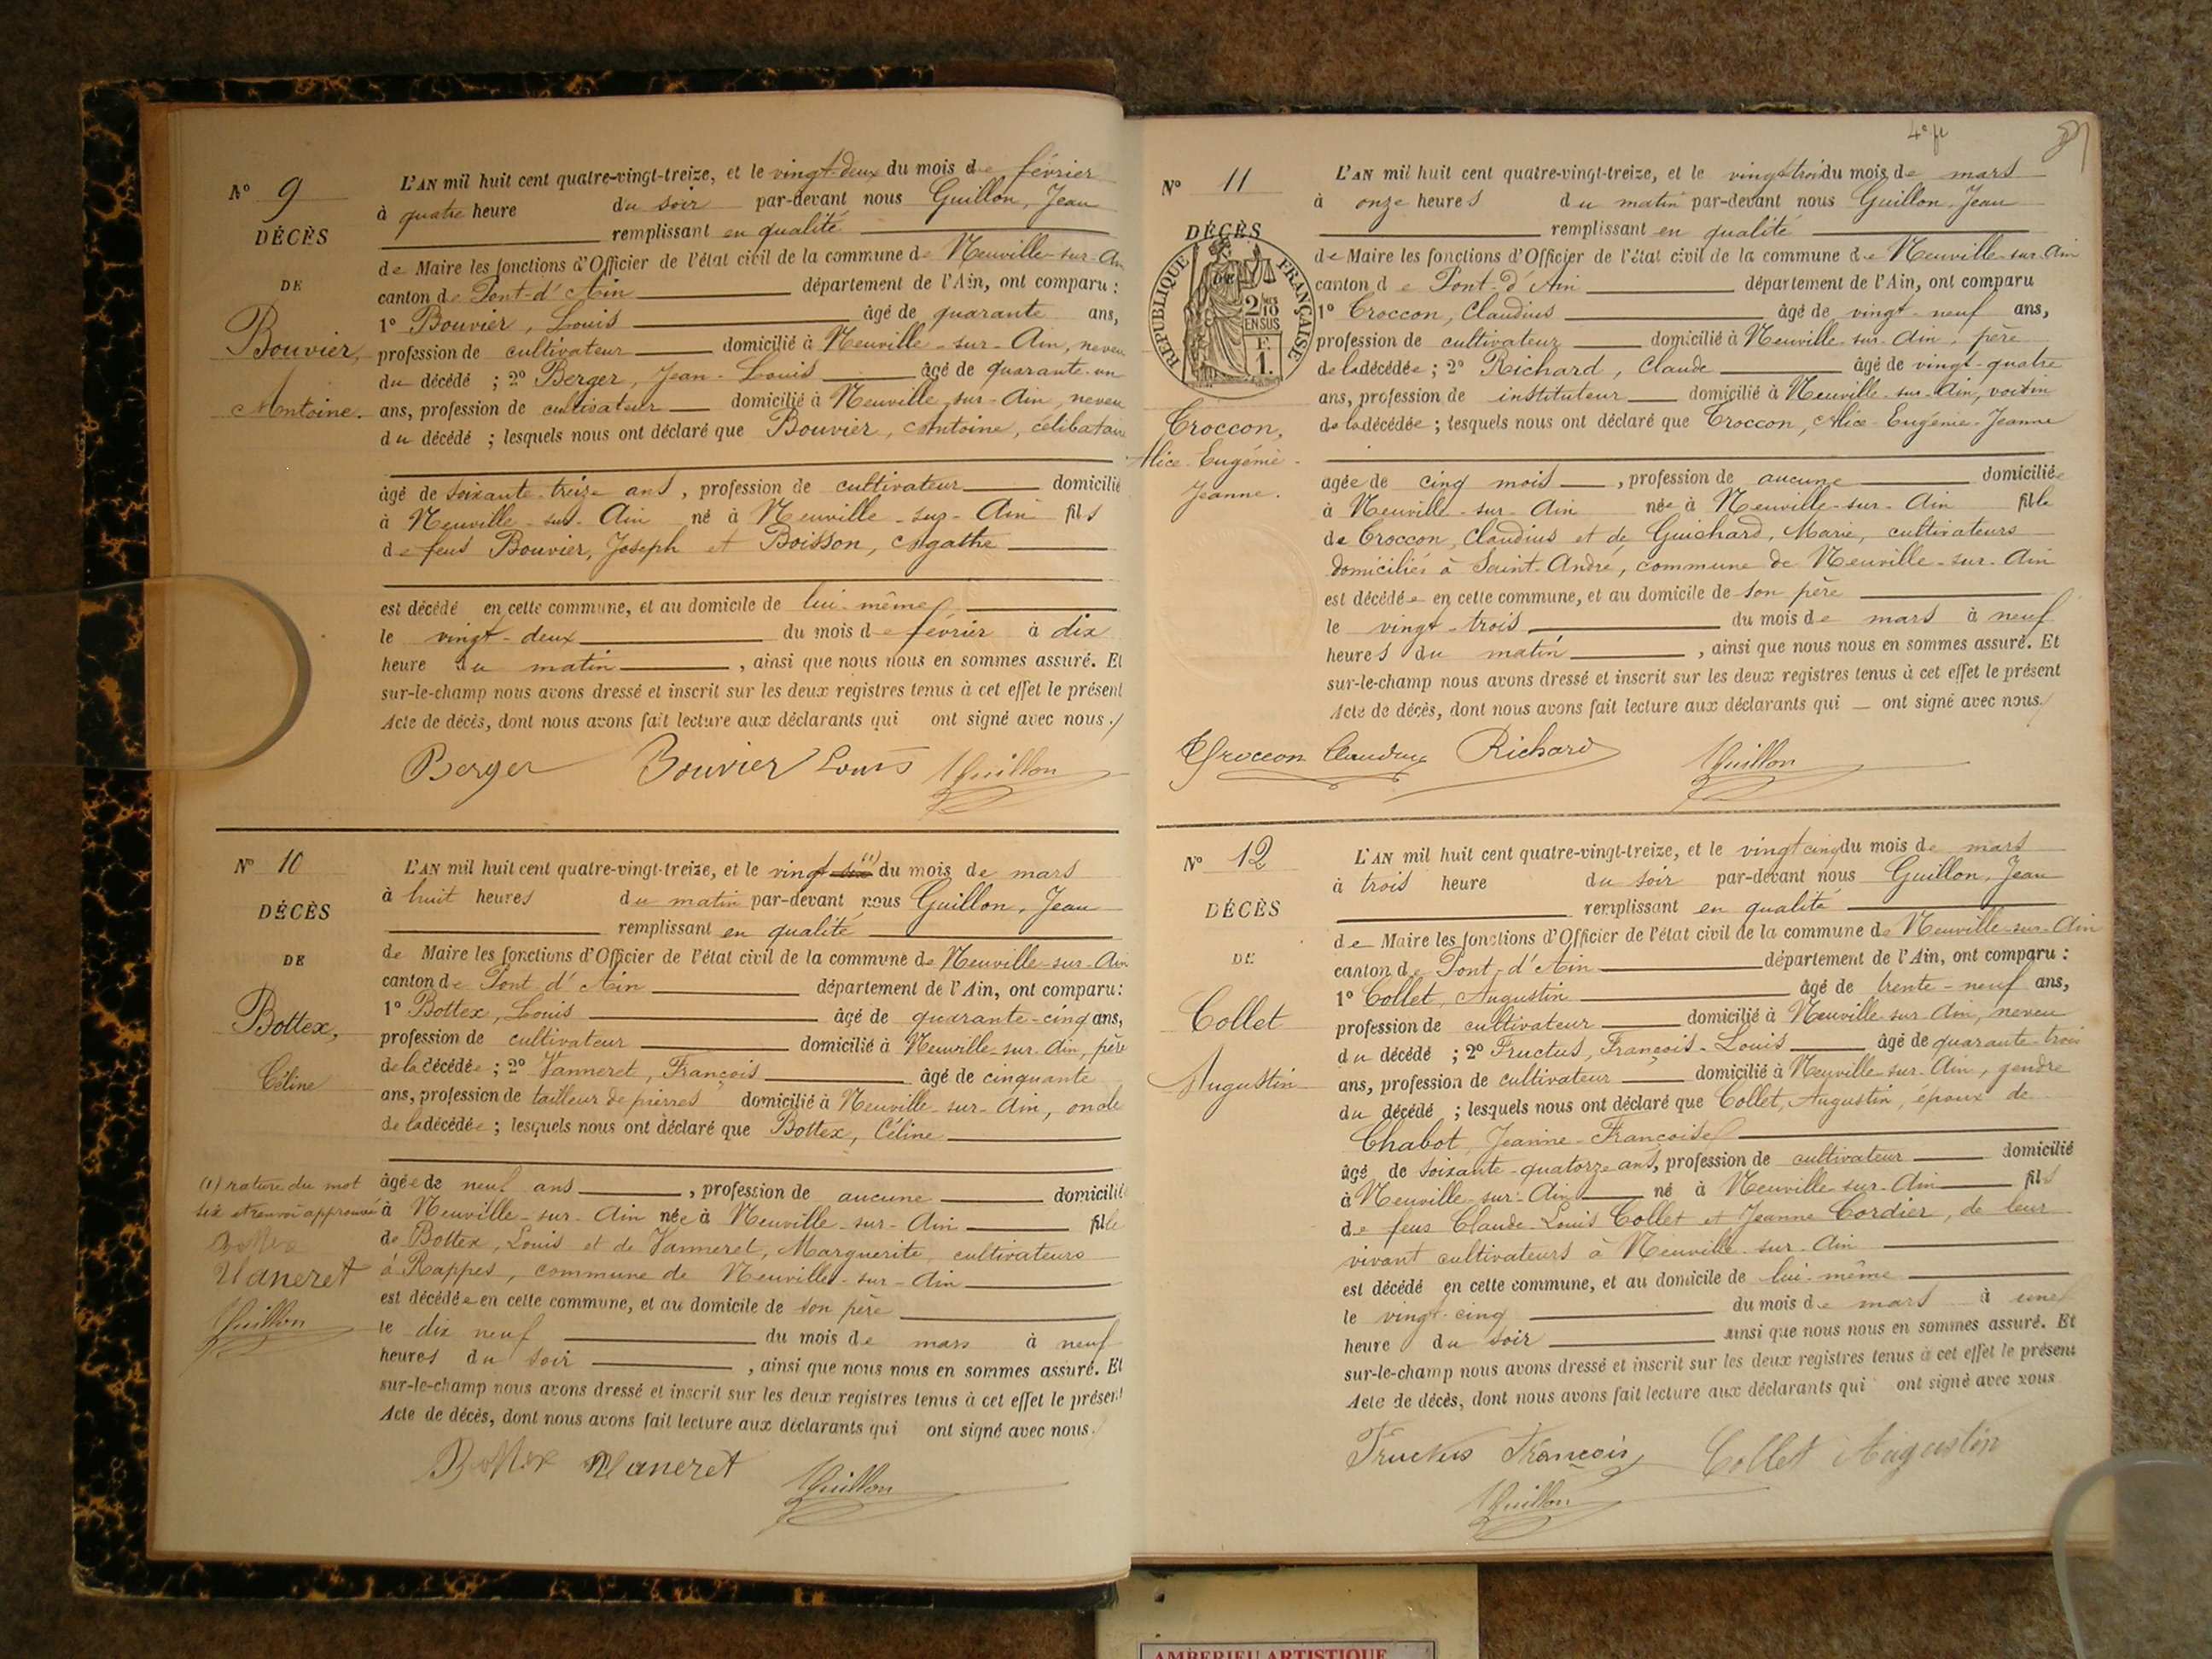 N° 9
DÉCÈS
DE
Bouvier,
Antoine.
L'AN mil huit cent quatre-vingt-treize, et le vingt-deux du mois de février
à quatre heure du soir par-devant nous Guillon, Jean
remplissant en qualité
de Maire les fonctions d'Officier de l'état civil de la commune de Neuville-sur-Ain
canton de Pont-d'Ain département de l'Ain, ont comparu :
1° Bouvier, Louis âgé de quarante ans,
profession de cultivateur domicilié à Neuville-sur-Ain, neveu
du décédé ; 2° Berger, Jean-Louis âgé de quarante-un
ans, profession de cultivateur domicilié à Neuville-sur-Ain, neveu
du décédé ; lesquels nous ont déclaré que Bouvier, Antoine, célibataire
âgé de soixante-treize ans, profession de cultivateur domicilié
à Neuville-sur-Ain né à Neuville-sur-Ain fils
de feus Bouvier, Joseph et Boisson, Agathe
est décédé en cette commune, et au domicile de lui-même
le vingt-deux du mois de février à dix
heure du matin, ainsi que nous nous en sommes assuré. Et
sur-le-champ nous avons dressé et inscrit sur les deux registres tenus à cet effet le présent
Acte de décès, dont nous avons fait lecture aux déclarants qui ont signé avec nous.
Berger Bouvier Louis JGuillon
N° 10
DÉCÈS
DE
Bottex,
Céline
(1) rature du mot
six et renvoi approuvé
Bottex
Vaneret
JGuillon
L'AN mil huit cent quatre-vingt-treize, et le vingt six (1) du mois de mars
à huit heures du matin par-devant nous Guillon, Jean
remplissant en qualité
de Maire les fonctions d'Officier de l'état civil de la commune de Neuville-sur-Ain
canton de Pont d'Ain département de l'Ain, ont comparu :
1° Bottex, Louis âgé de quarante-cinq ans,
profession de cultivateur domicilié à Neuville-sur-Ain, père
de la décédée ; 2° Vanneret, François âgé de cinquante
ans, profession de tailleur de pierres domicilié à Neuville-sur-Ain, oncle
de la décédée ; lesquels nous ont déclaré que Bottex, Céline
âgée de neuf ans, profession de aucune domicilié
à Neuville-sur-Ain née à Neuville-sur-Ain fille
de Bottex, Louis et de Vanneret, Marguerite, cultivateurs
à Rappes, commune de Neuville-sur-Ain
est décédée en cette commune, et au domicile de son père
le dix neuf du mois de mars à neuf
heures du soir, ainsi que nous nous en sommes assuré. Et
sur-le-champ nous avons dressé et inscrit sur les deux registres tenus à cet effet le présent
Acte de décès, dont nous avons fait lecture aux déclarants qui ont signé avec nous.
Bottex Vaneret JGuillon
N° 11
DÉCÈS
DE
RÉPUBLIQUE FRANÇAISE
2/10 EN SUS
F. 1.
Croccon,
Alice-Eugénie-
Jeanne.
L'AN mil huit cent quatre-vingt-treize, et le vingt-trois du mois de mars
à onze heures du matin par-devant nous Guillon, Jean
remplissant en qualité
de Maire les fonctions d'Officier de l'état civil de la commune de Neuville-sur-Ain
canton de Pont-d'Ain département de l'Ain, ont comparu
1° Croccon, Claudius âgé de vingt-neuf ans,
profession de cultivateur domicilié à Neuville-sur-Ain, père
de la décédée ; 2° Richard, Claude âgé de vingt-quatre
ans, profession de instituteur domicilié à Neuville-sur-Ain, voisin
de la décédée ; lesquels nous ont déclaré que Croccon, Alice-Eugénie-Jeanne
agée de cinq mois, profession de aucune domiciliée
à Neuville-sur-Ain née à Neuville-sur-Ain fille
de Croccon, Claudius et de Guichard, Marie, cultivateurs
domiciliés à Saint-André, commune de Neuville-sur-Ain
est décédée en cette commune, et au domicile de son père
le vingt-trois du mois de mars à neuf
heures du matin, ainsi que nous nous en sommes assuré. Et
sur-le-champ nous avons dressé et inscrit sur les deux registres tenus à cet effet le présent
Acte de décès, dont nous avons fait lecture aux déclarants qui — ont signé avec nous.
Croccon Claudius Richard JGuillon
N° 12
DÉCÈS
DE
Collet
Augustin
L'AN mil huit cent quatre-vingt-treize, et le vingt cinq du mois de mars
à trois heure du soir par-devant nous Guillon, Jean
remplissant en qualité
de Maire les fonctions d'Officier de l'état civil de la commune de Neuville-sur-Ain
canton de Pont-d'Ain département de l'Ain, ont comparu :
1° Collet, Augustin âgé de trente-neuf ans,
profession de cultivateur domicilié à Neuville-sur-Ain, neveu
du décédé ; 2° Fructus, François-Louis âgé de quarante-trois
ans, profession de cultivateur domicilié à Neuville-sur-Ain, gendre
du décédé ; lesquels nous ont déclaré que Collet, Augustin, époux de
Chabot, Jeanne-Françoise
âgé de soixante-quatorze ans, profession de cultivateur domicilié
à Neuville-sur-Ain né à Neuville-sur-Ain fils
de feus Claude-Louis Collet et Jeanne Cordier, de leur
vivant cultivateurs à Neuville-sur-Ain
est décédé en cette commune, et au domicile de lui-même
le vingt-cinq du mois de mars à une
heure du soir ainsi que nous nous en sommes assuré. Et
sur-le-champ nous avons dressé et inscrit sur les deux registres tenus à cet effet le présent
Acte de décès, dont nous avons fait lecture aux déclarants qui ont signé avec nous
Fructus François Collet Augustin
JGuillon
AMBERIEU ARTISTIQUE